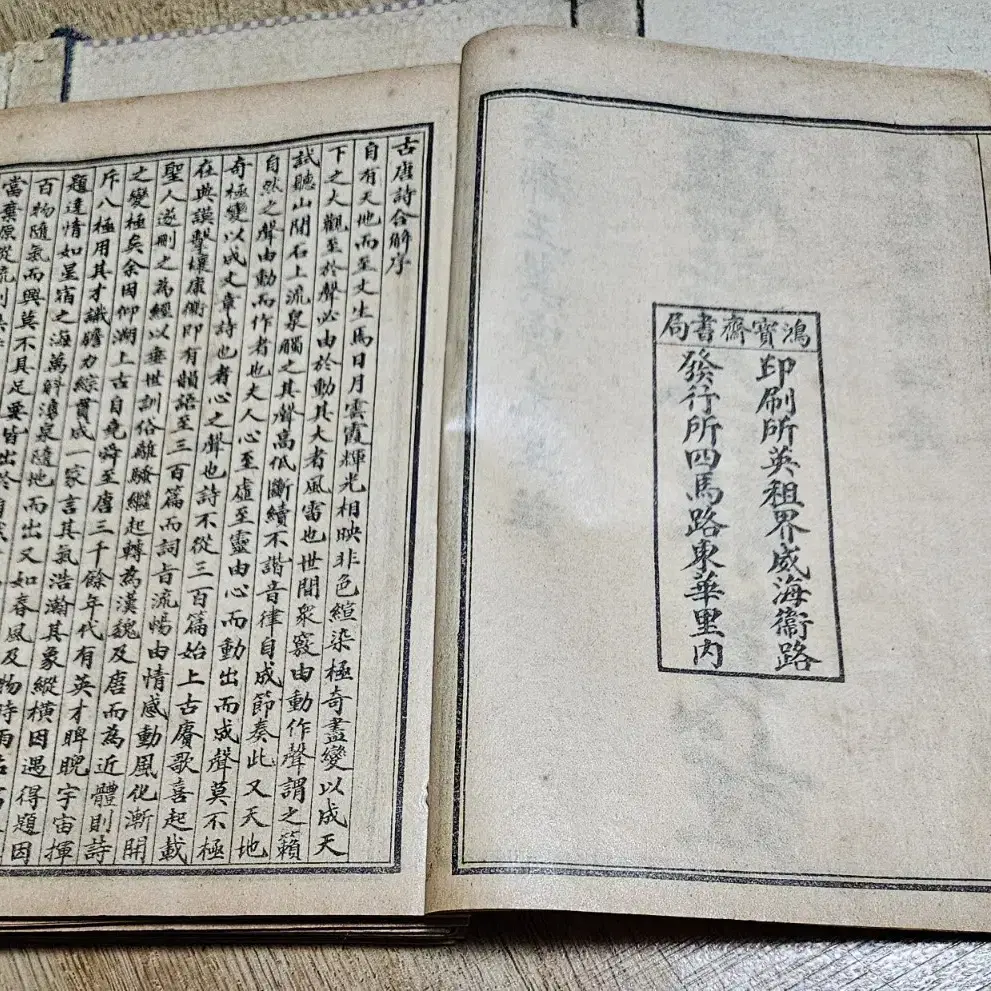 鴻寶齋書局
印刷所英租界威海衞路
發行所四馬路東華里內
古唐詩合解序
自有天地而至文生焉日月雲霞輝光相映非色絢染極奇盡變以成天
下之大觀至於聲必由於動其大者風雷也世間衆竅由動作聲謂之籟
試聽山閒石上流泉觸之其聲高低斷續不諧音律自成節奏此又天地
自然之聲由動而作者也夫人心至虛至靈由心而動出而成聲莫不極
奇極變以成文章詩也者心之聲也詩不從三百篇始上古賡歌喜起載
在典謨擊壤康衢即有韻語至三百篇而詞旨流暢由情感動風化漸開
聖人遂刪之為經以垂世訓俗離騷繼起轉為漢魏及唐而為近體則詩
之變極矣余因仰溯上古自堯舜至唐三千餘年代有英才睥睨宇宙揮
斥八極用其才識膽力綜貫成一家言其氣浩瀚其象縱橫因遇得題因
題達情如星宿之海萬斛湧泉隨地而出又如春風及物時雨
百物隨氣而興莫不具足要皆出於自
當棄原從流則